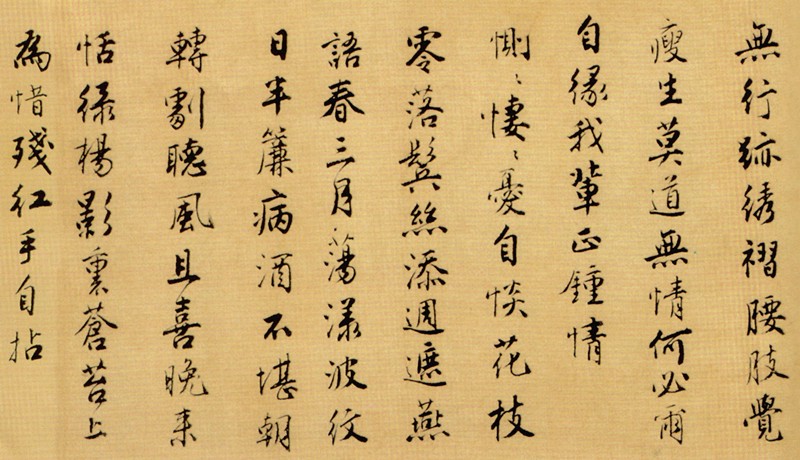 無行跡綉褶腰肢覺
瘦生莫道無情何必爾
自緣我輩正鍾情
惻〻悽〻憂自惔花枝
零落鬂絲添週遮燕
語春三月蕩漾波紋
日半簾病酒不堪朝
轉劇聽風且喜晚來
恬綠楊影裏蒼苔上
為惜殘紅手自拈